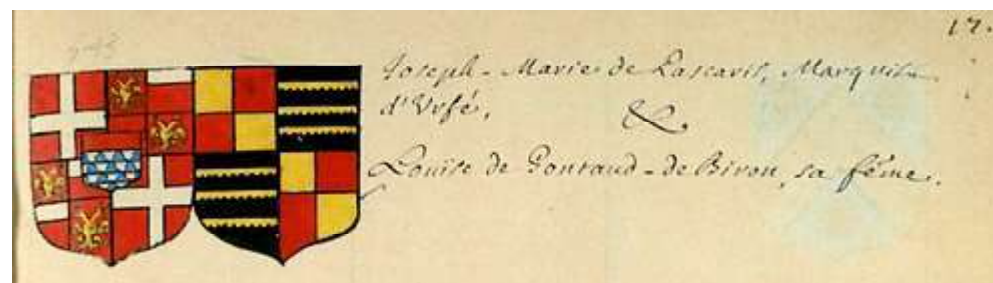 17.
Joseph-Marie de Lascaris, Marquis
d'Urfé,
&
Louïse de Gontaud-de Biron, sa fême.